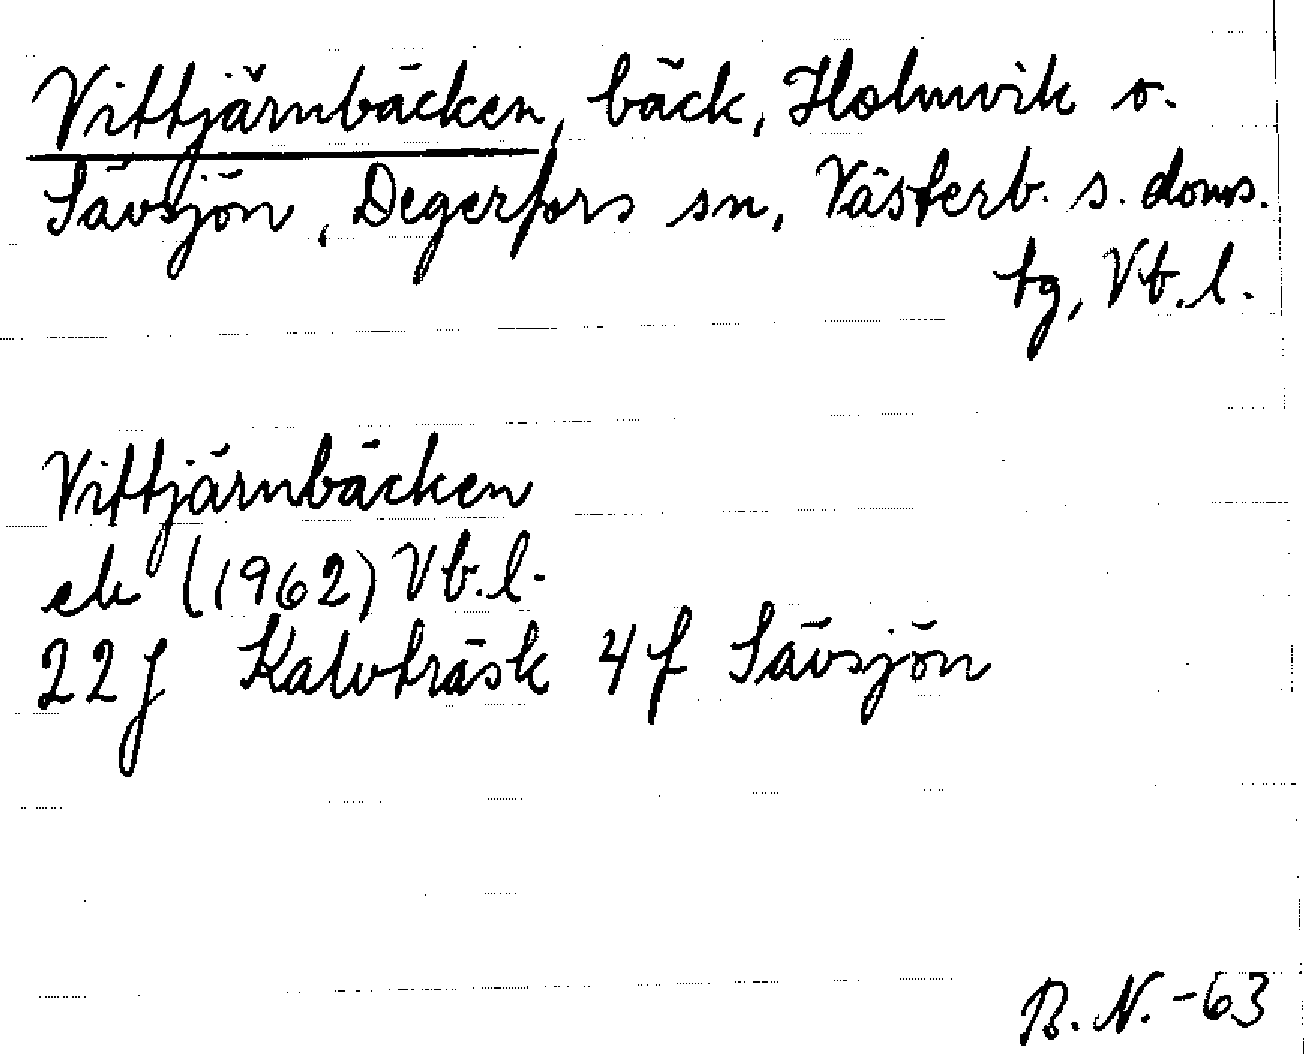 Vittjärnbäcken, bäck, Holmvik o.
Sävsjön, Degerfors sn, Västerb. s. doms.
tg, Vb. l.
Vittjärnbäcken
ek (1962) Vb. l.
22 J Kalvträsk 4 f Sävsjön
B. N. -63